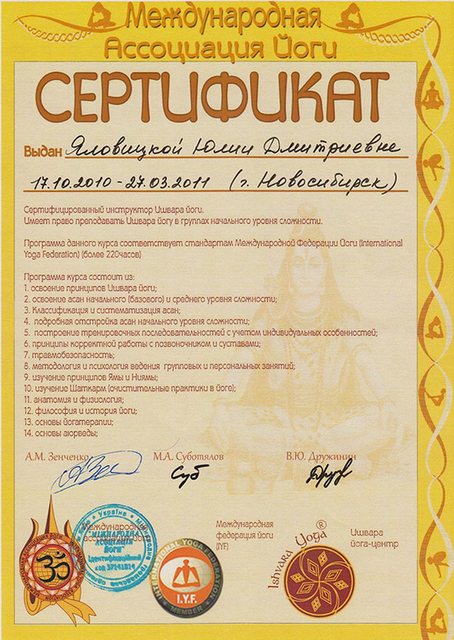 Международная
Ассоциация Йоги
СЕРТИФИКАТ
Выдан Яловицкой Юлии Дмитриевне
17.10.2010 - 27.03.2011 (г. Новосибирск)
Сертифицированный инструктор Ишвара йоги.
Имеет право преподавать Ишвара йогу в группах начального уровня сложности.
Программа данного курса соответствует стандартам Международной Федерации Йоги (International
Yoga Federation) (более 220часов)
Программа курса состоит из:
1. освоение принципов Ишвара йоги;
2. освоение асан начального (базового) и среднего уровня сложности;
3. Классификация и систематизация асан;
4. подробная отстройка асан начального уровня сложности;
5. построение тренировочных последовательностей с учетом индивидуальных особенностей;
6. принципы корректной работы с позвоночником и суставами;
7. травмобезопасность;
8. методология и психология ведения групповых и персональных занятий;
9. изучение принципов Ямы и Ниямы;
10. изучение Шаткарм (очистительные практики в йоге);
11. анатомия и физиология;
12. философия и история йоги;
13. основы йогатерапии;
14. основы аюрведы;
А.М. Зенченко М.А. Суботялов В.Ю. Дружинин
Международная
ассоциация
йоги
Україна
МІЖНАРОДНА
АСОЦІАЦІЯ
ЙОГИ
Ідентифікаційний
код
Международная
федерация йоги
(IYF)
INTERNATIONAL YOGA FEDERATION
I.Y.F.
MEMBER
Ishvara Yoga ®
Ишвара
йога-центр